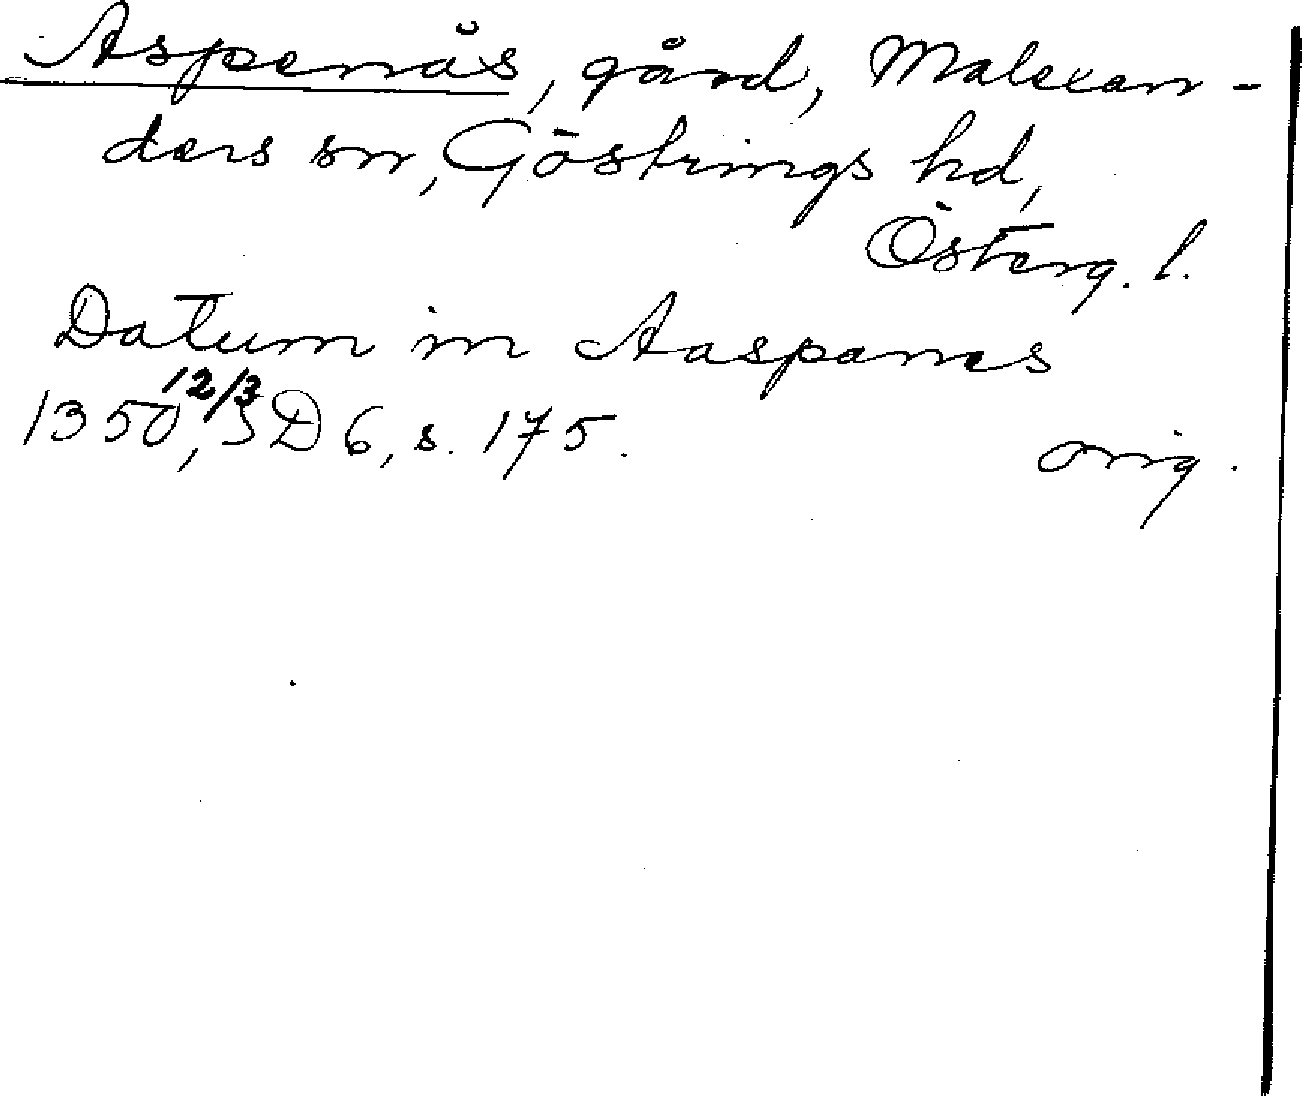 Aspenäs, gård, Malexan-
ders sn, Göstrings hd,
Österg. l.
Datum in Aaspanes
1350 12/3, SD 6, s. 175.
orig.